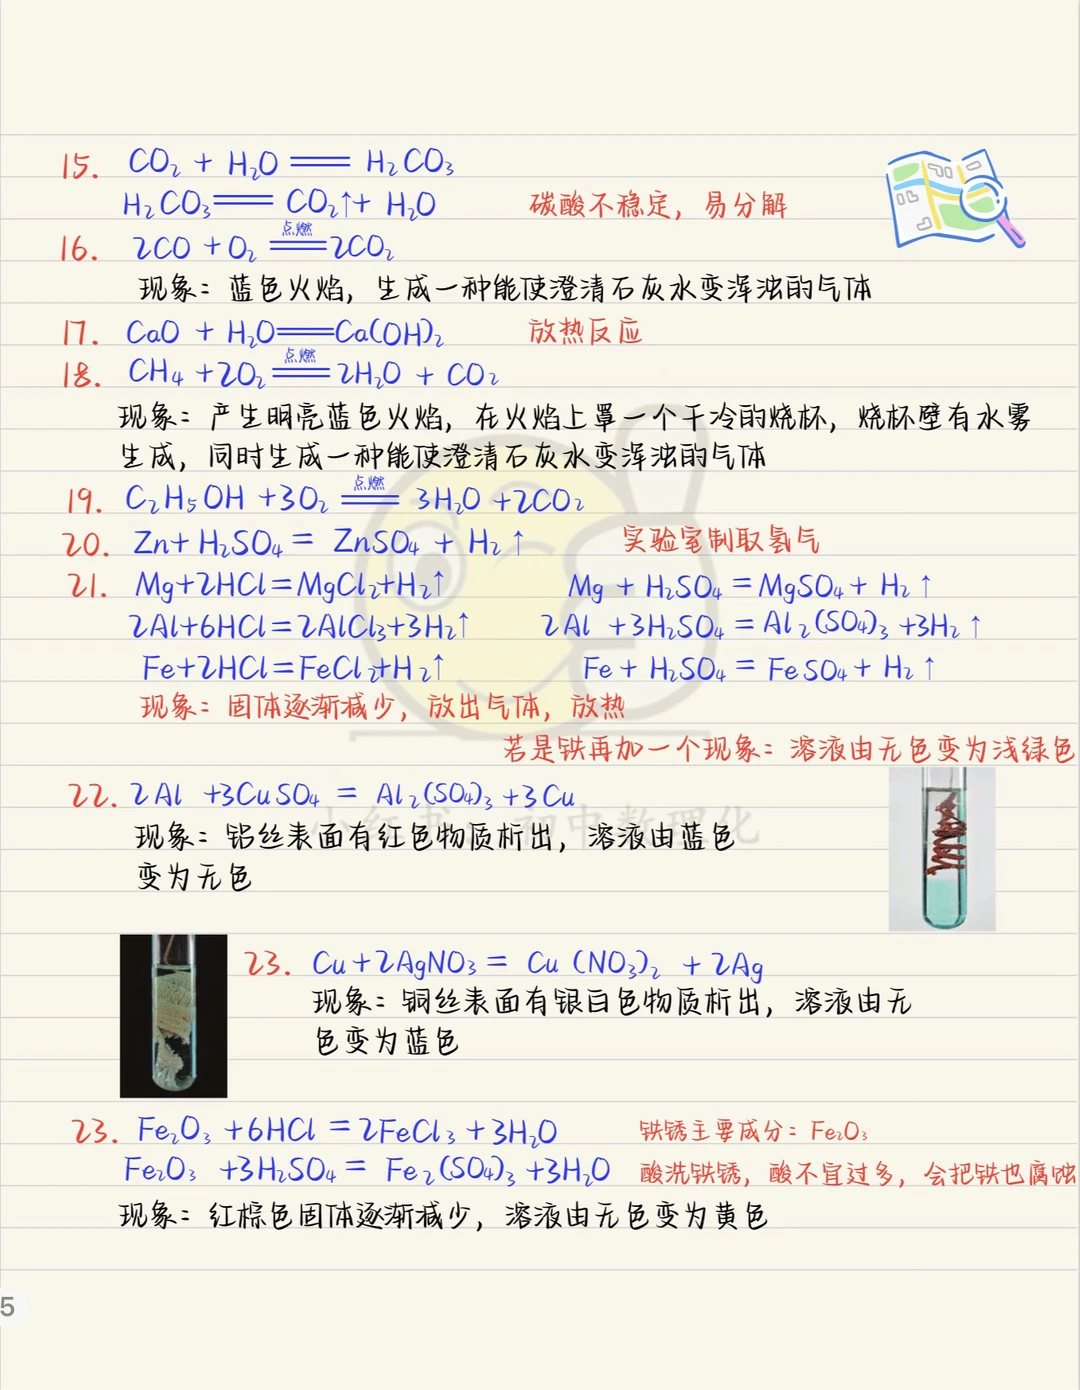 15. CO₂ + H₂O ══ H₂CO₃
H₂CO₃ ══ CO₂↑ + H₂O 碳酸不稳定，易分解
16. 2CO + O₂ ══点燃══ 2CO₂
现象：蓝色火焰，生成一种能使澄清石灰水变浑浊的气体
17. CaO + H₂O ══ Ca(OH)₂ 放热反应
18. CH₄ + 2O₂ ══点燃══ 2H₂O + CO₂
现象：产生明亮蓝色火焰，在火焰上罩一个干冷的烧杯，烧杯壁有水雾
生成，同时生成一种能使澄清石灰水变浑浊的气体
19. C₂H₅OH + 3O₂ ══点燃══ 3H₂O + 2CO₂
20. Zn + H₂SO₄ = ZnSO₄ + H₂↑ 实验室制取氢气
21. Mg+2HCl=MgCl₂+H₂↑ Mg + H₂SO₄ = MgSO₄ + H₂↑
2Al+6HCl=2AlCl₃+3H₂↑ 2Al + 3H₂SO₄ = Al₂(SO₄)₃ + 3H₂↑
Fe+2HCl=FeCl₂+H₂↑ Fe + H₂SO₄ = FeSO₄ + H₂↑
现象：固体逐渐减少，放出气体，放热
若是铁再加一个现象：溶液由无色变为浅绿色
22. 2Al + 3CuSO₄ = Al₂(SO₄)₃ + 3Cu
小红书：初中数理化
现象：铝丝表面有红色物质析出，溶液由蓝色
变为无色
23. Cu+2AgNO₃ = Cu(NO₃)₂ + 2Ag
现象：铜丝表面有银白色物质析出，溶液由无
色变为蓝色
23. Fe₂O₃ + 6HCl = 2FeCl₃ + 3H₂O 铁锈主要成分：Fe₂O₃
Fe₂O₃ + 3H₂SO₄ = Fe₂(SO₄)₃ + 3H₂O 酸洗铁锈，酸不宜过多，会把铁也腐蚀
现象：红棕色固体逐渐减少，溶液由无色变为黄色
5